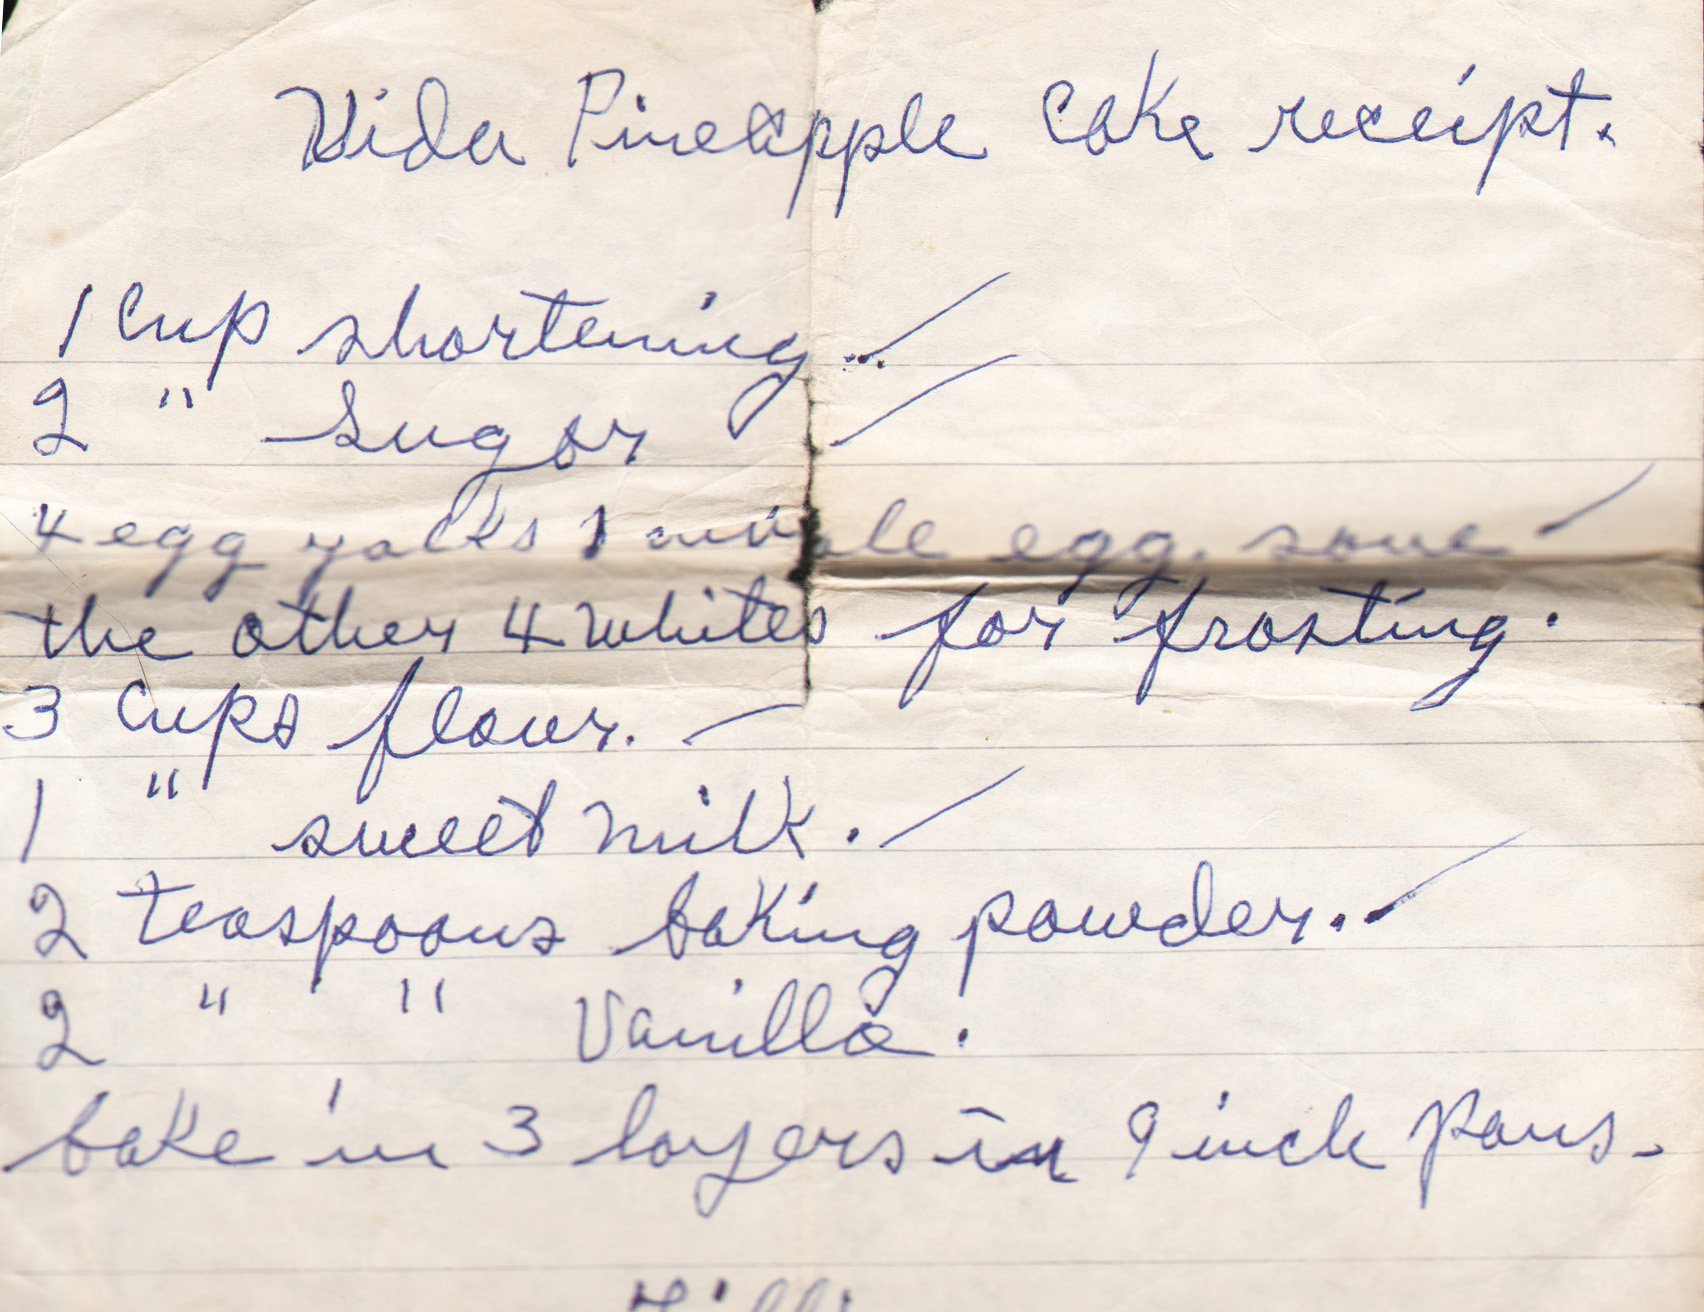 Vida Pineapple Cake receipt.
1 Cup shortening.
2 " Sugar
4 egg yolks 1 whole egg. save
the other 4 whites for frosting.
3 Cups flour.
1 " sweet milk.
2 teaspoons baking powder.
2 " " Vanilla.
bake in 3 layers in 9 inch pans.